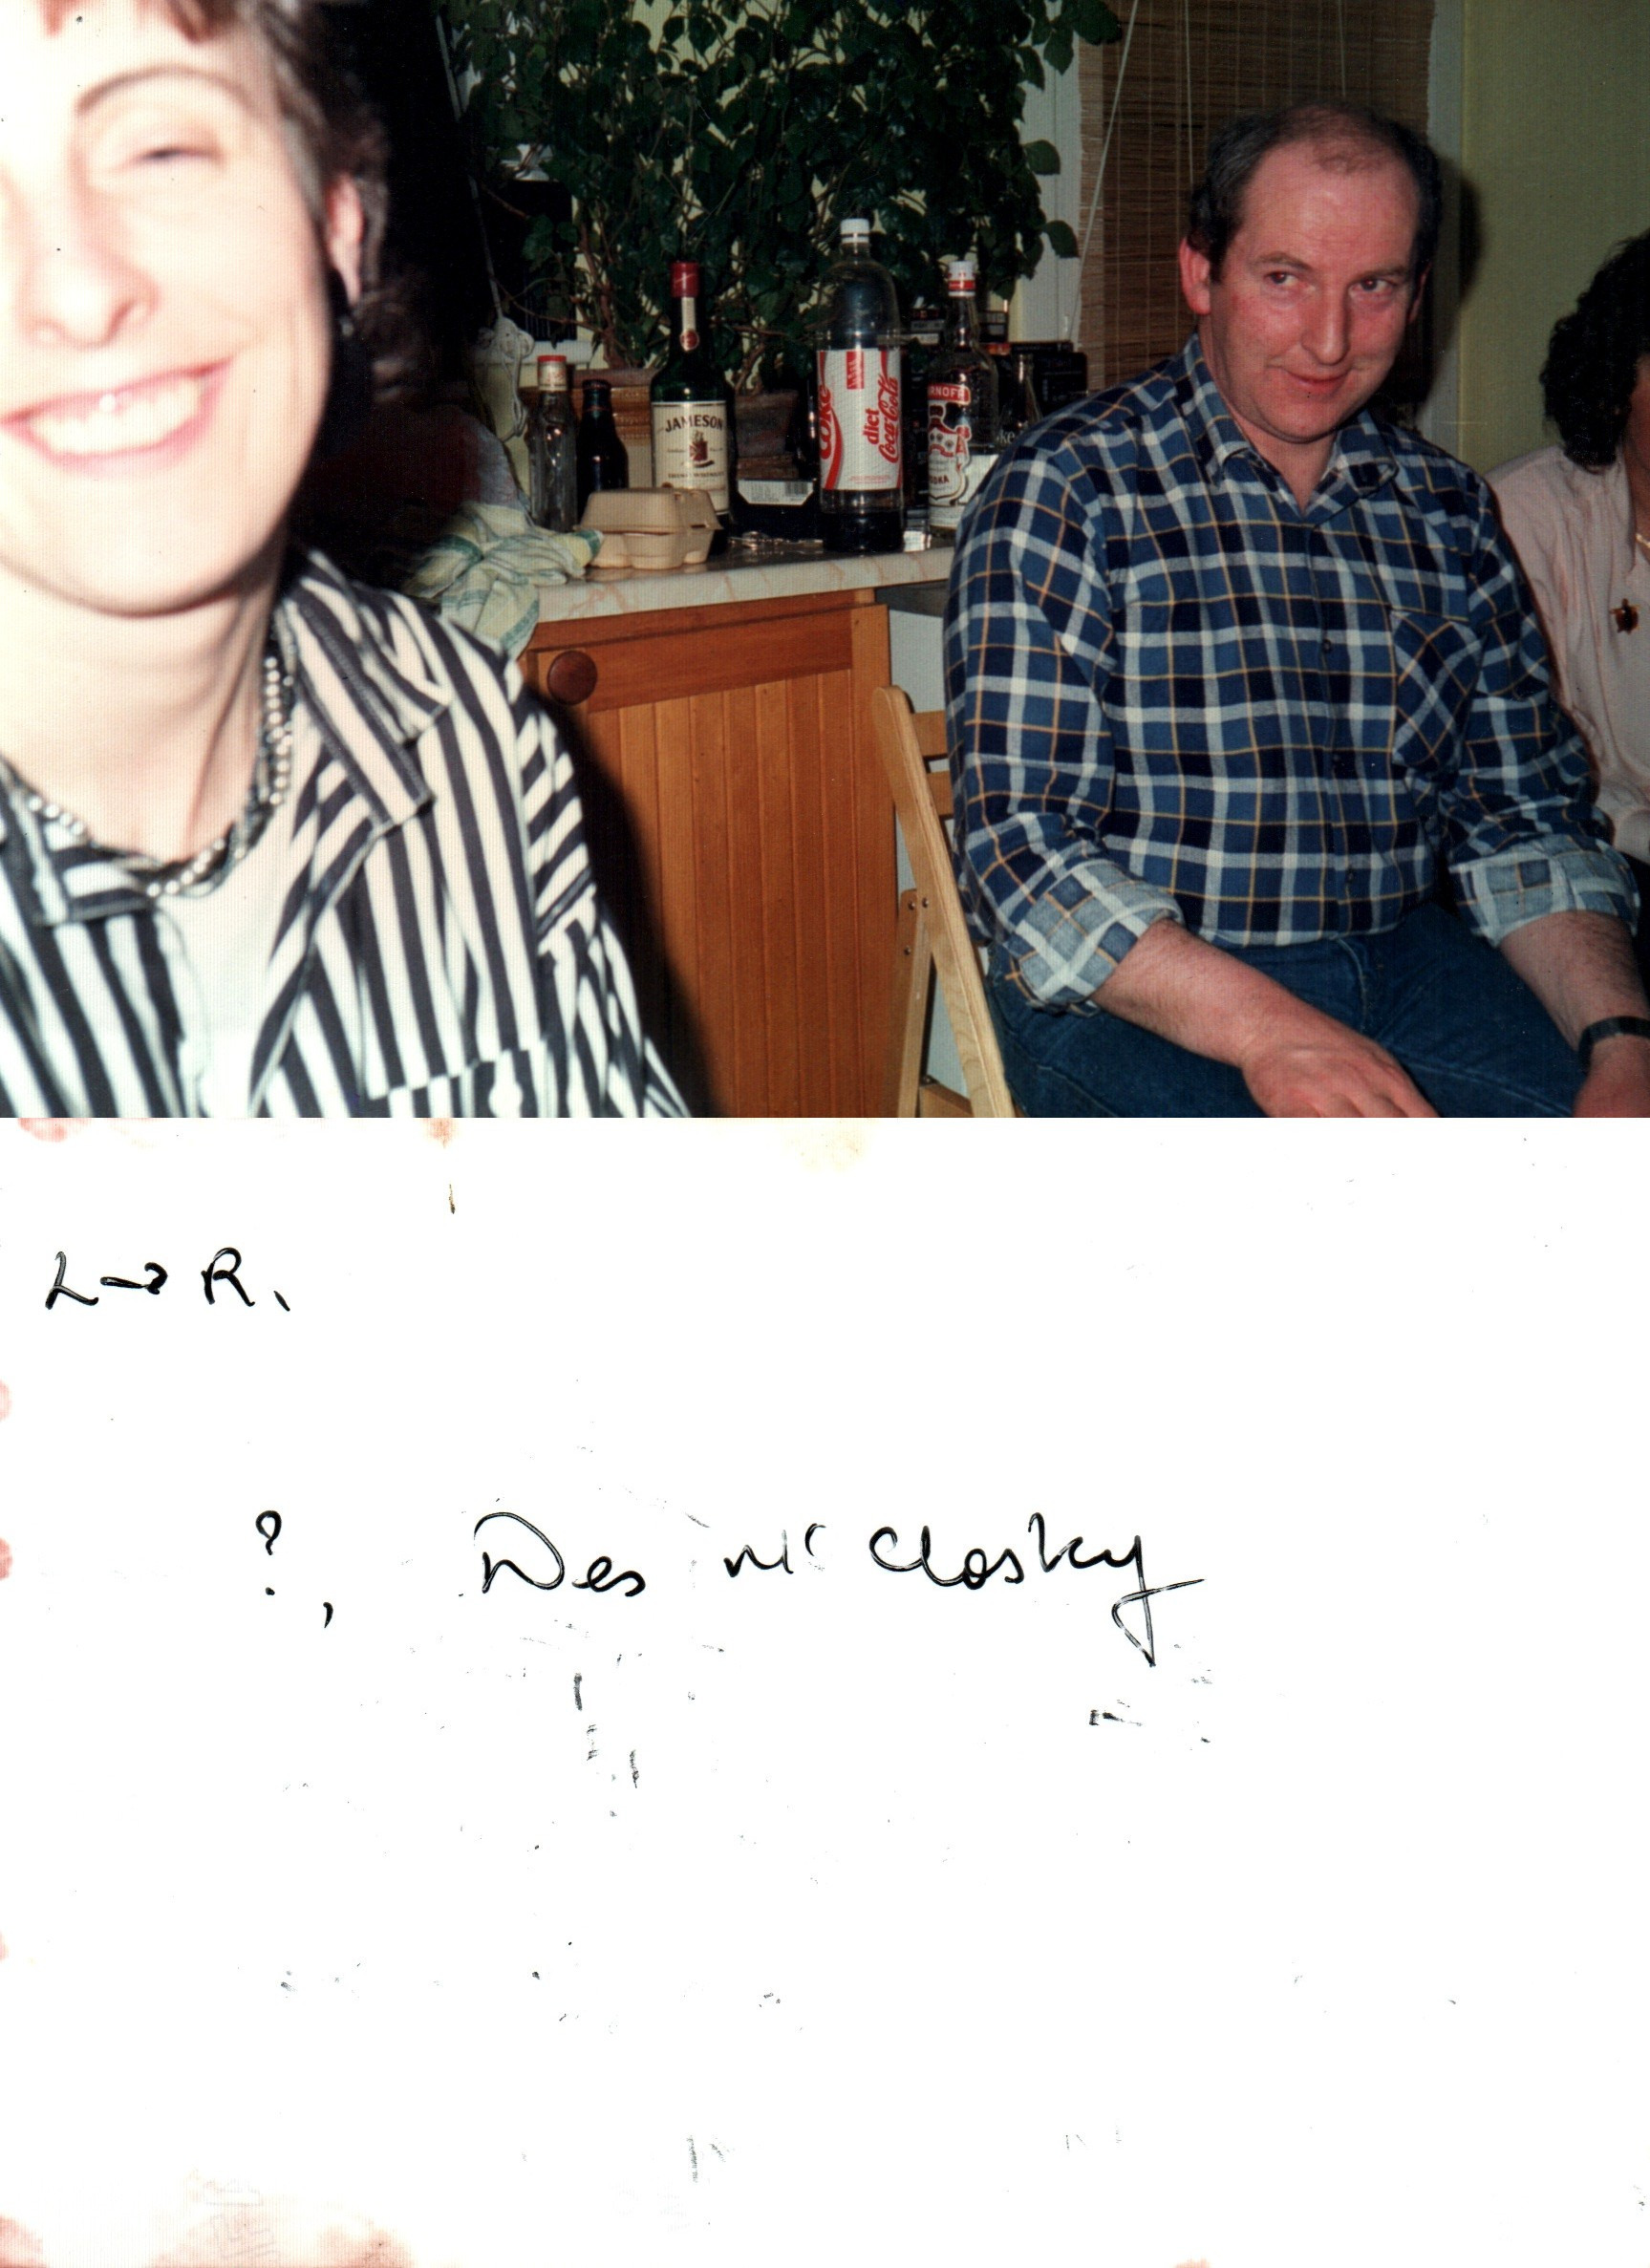 JAMESON
Coke
diet
Coca-Cola
RNOFF
ODKA
L → R.
?, Des Mc Closky